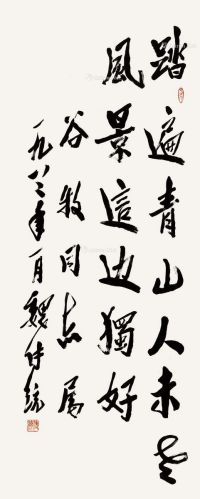 踏遍青山人未老
風景這边獨好
谷牧同志属
一九八三年一月魏传統